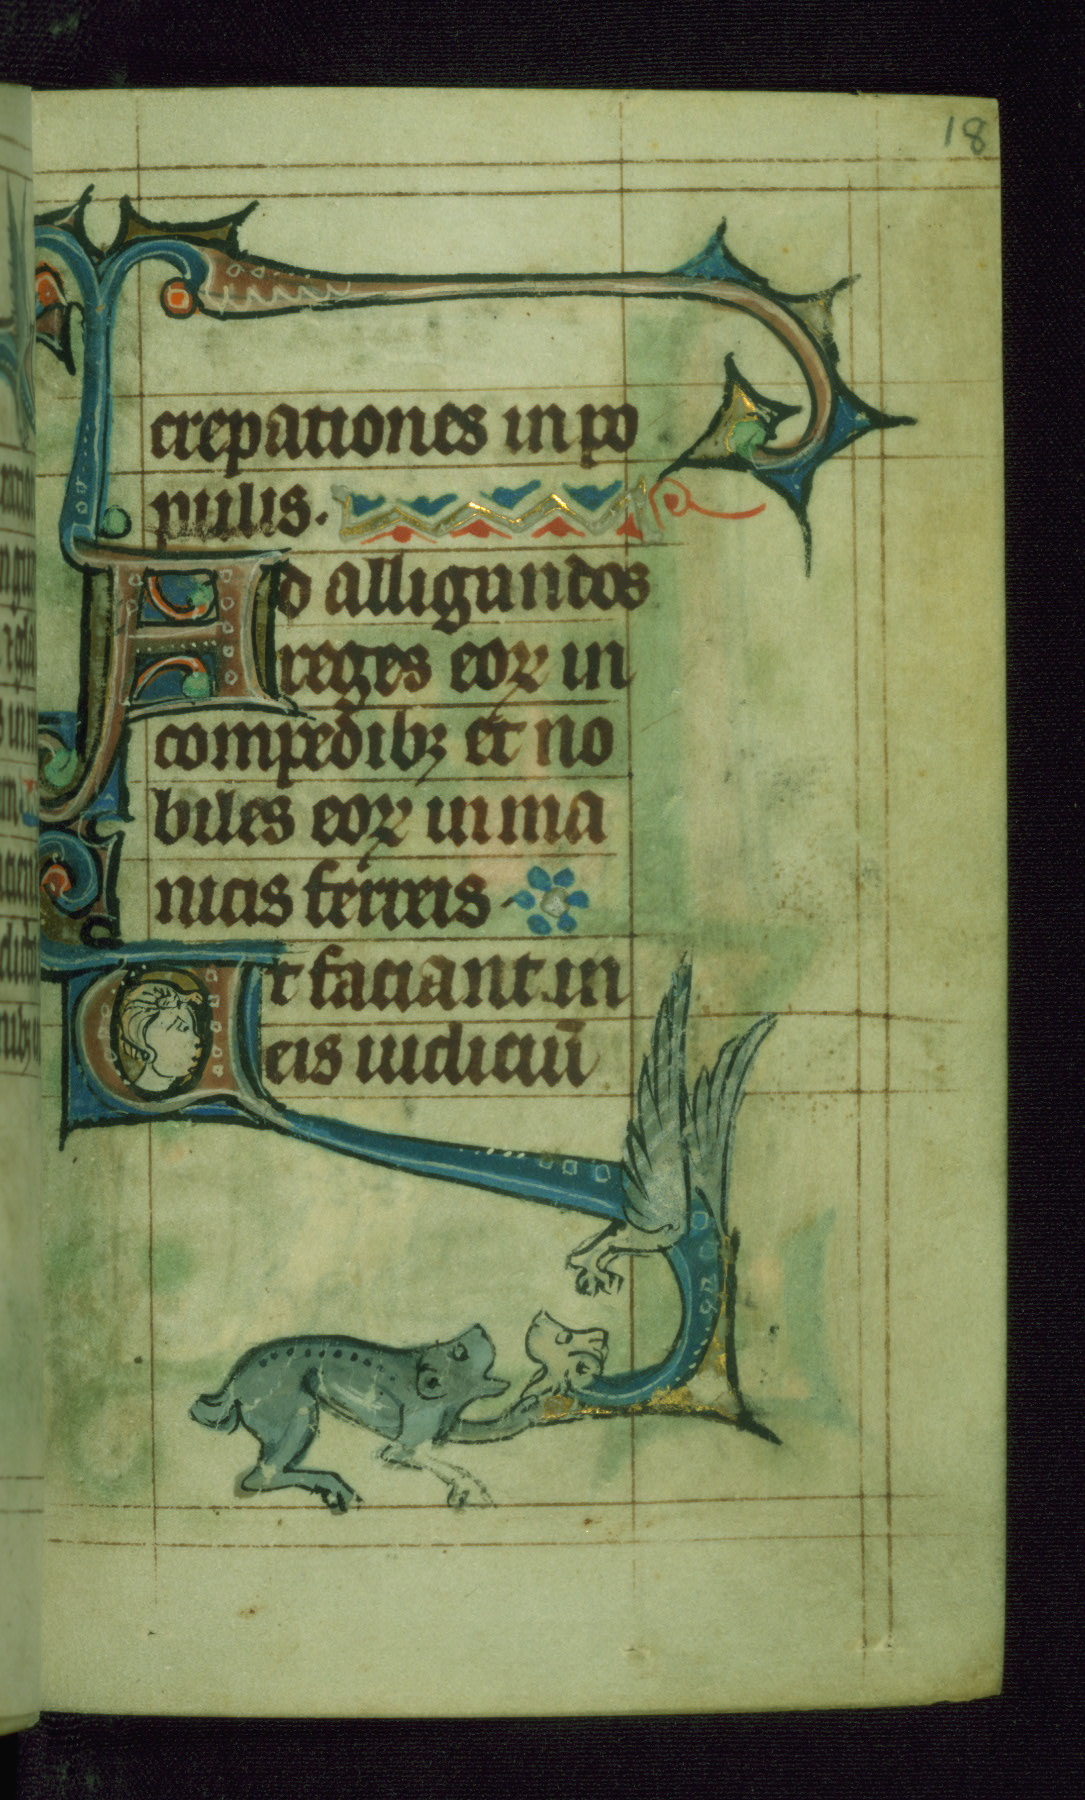 18
crepationes in po
pulis.
Ad alligandos
reges eoꝝ in
compedibꝫ et no
biles eoꝝ in ma
nicis ferreis
Et faciant in
eis iudiciū